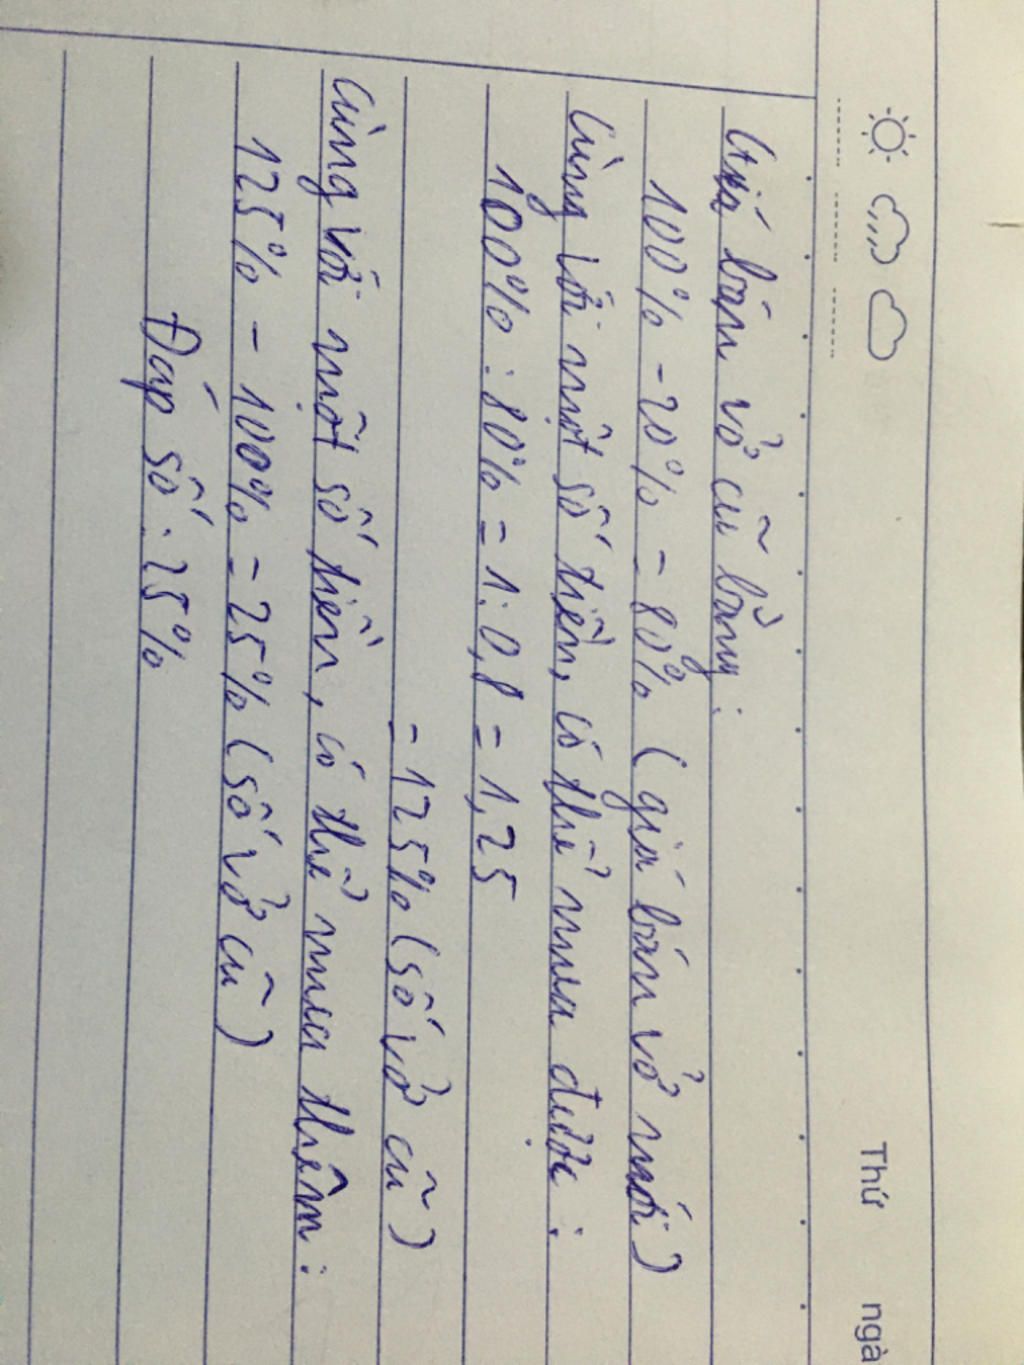 Thứ ngà
Giá bán vở cũ bằng:
100% - 20% = 80% (giá bán vở mới)
Cùng với một số tiền, có thể mua được:
100% : 80% = 1:0,8 = 1,25
= 125% (số vở cũ)
Cùng với một số tiền, có thể mua thêm:
125% - 100% = 25% (số vở cũ)
Đáp số: 25%